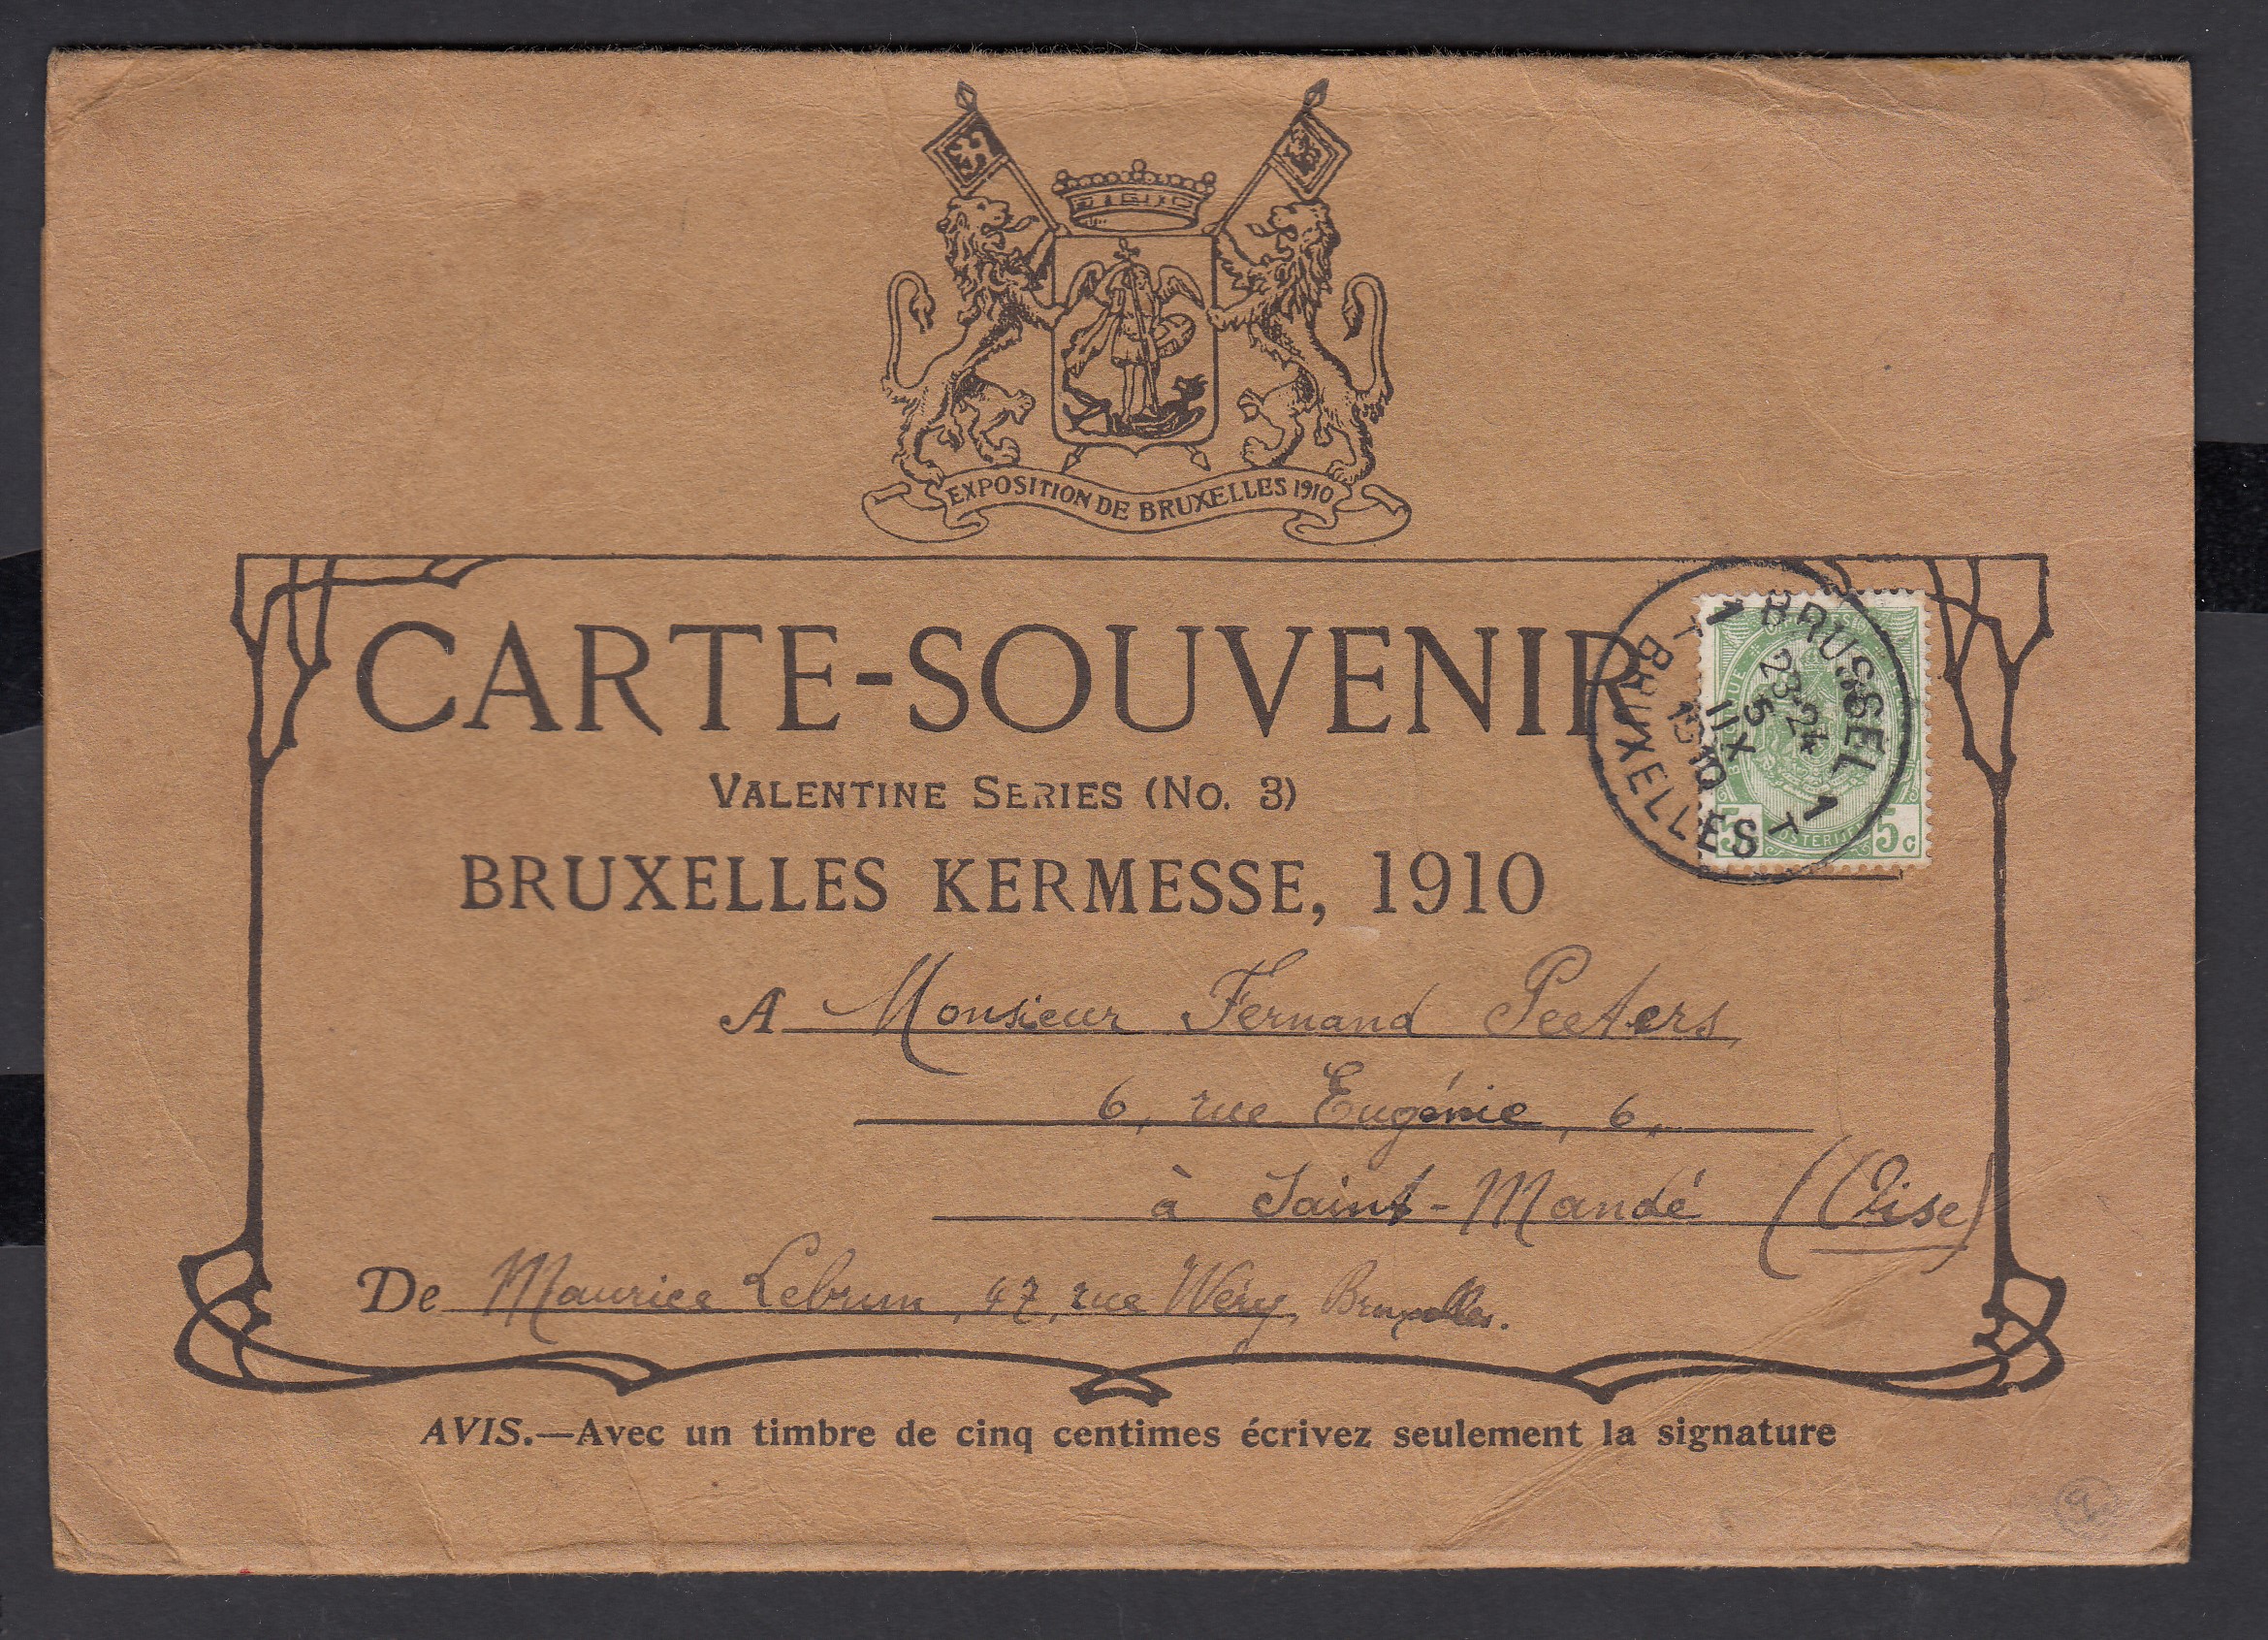 EXPOSITION DE BRUXELLES 1910
CARTE-SOUVENIR
VALENTINE SERIES (NO. 3)
BRUXELLES KERMESSE, 1910
1 BRUSSEL 1
T BRUXELLES T
23-24
5
IIX
1910
BELGIQUE
5 5c
A Monsieur Fernand Peeters,
6, rue Eugénie, 6,
à Saint-Mandé (Oise)
De Maurice Lebrun, 47, rue Wéry, Bruxelles.
AVIS.—Avec un timbre de cinq centimes écrivez seulement la signature